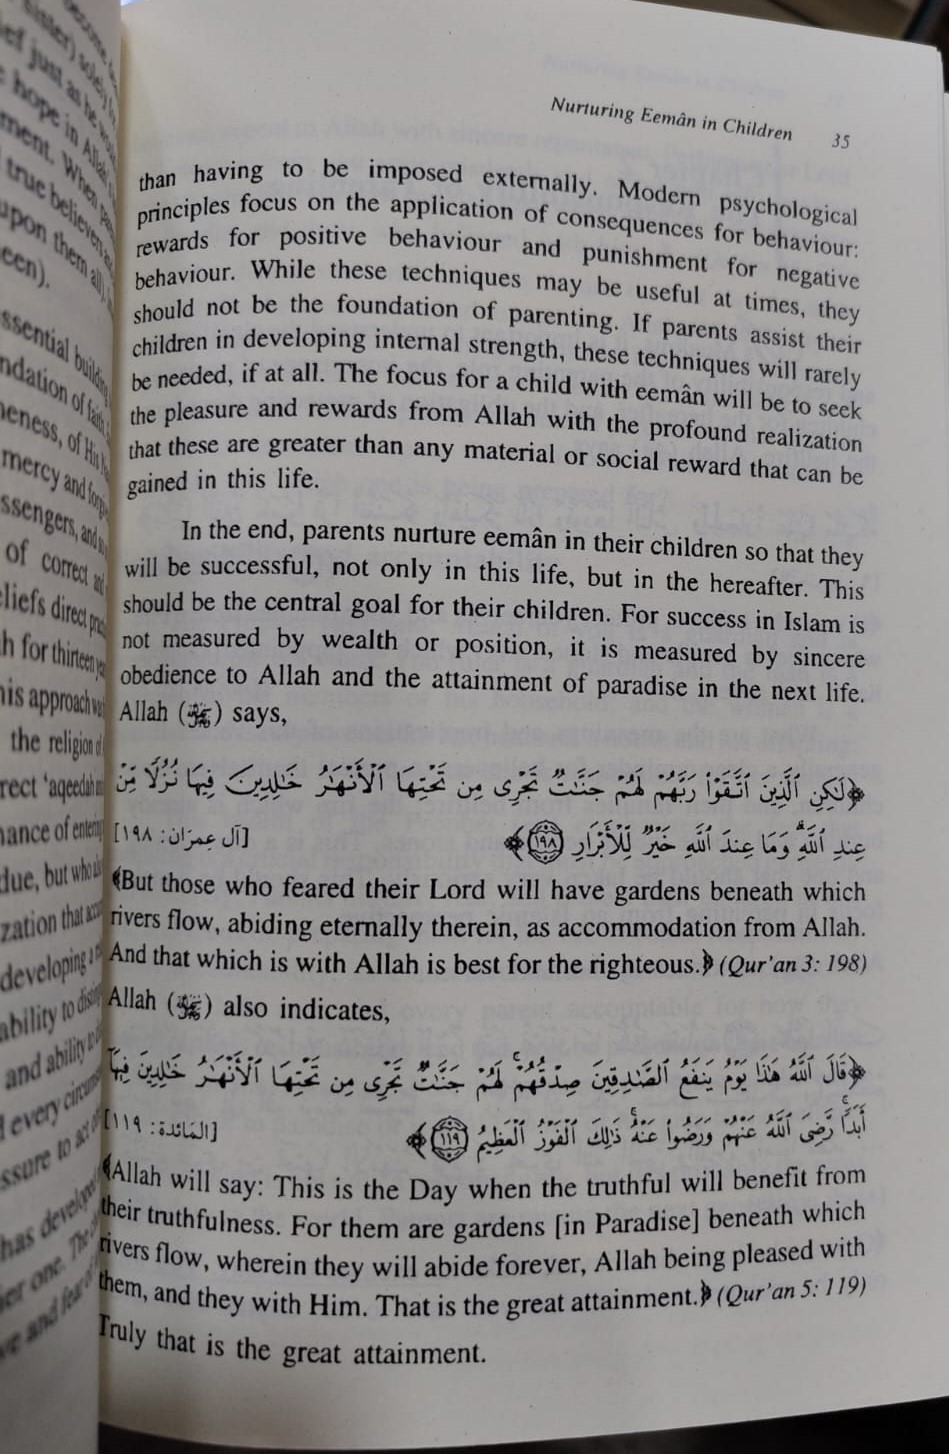 Nurturing Eemân in Children 35
than having to be imposed externally. Modern psychological
principles focus on the application of consequences for behaviour:
rewards for positive behaviour and punishment for negative
behaviour. While these techniques may be useful at times, they
should not be the foundation of parenting. If parents assist their
children in developing internal strength, these techniques will rarely
be needed, if at all. The focus for a child with eemân will be to seek
the pleasure and rewards from Allah with the profound realization
that these are greater than any material or social reward that can be
gained in this life.
In the end, parents nurture eemân in their children so that they
will be successful, not only in this life, but in the hereafter. This
should be the central goal for their children. For success in Islam is
not measured by wealth or position, it is measured by sincere
obedience to Allah and the attainment of paradise in the next life.
Allah (ﷻ) says,
﴿لَٰكِنِ ٱلَّذِينَ ٱتَّقَوْا۟ رَبَّهُمْ لَهُمْ جَنَّٰتٌ تَجْرِى مِن تَحْتِهَا ٱلْأَنْهَٰرُ خَٰلِدِينَ فِيهَا نُزُلًا مِّنْ
عِندِ ٱللَّهِ ۗ وَمَا عِندَ ٱللَّهِ خَيْرٌ لِّلْأَبْرَارِ ١٩٨﴾ [آل عِمرَان: ١٩٨]
﴾But those who feared their Lord will have gardens beneath which
rivers flow, abiding eternally therein, as accommodation from Allah.
And that which is with Allah is best for the righteous.﴿ (Qur'an 3: 198)
Allah (ﷻ) also indicates,
﴿قَالَ ٱللَّهُ هَٰذَا يَوْمُ يَنفَعُ ٱلصَّٰدِقِينَ صِدْقُهُمْ ۚ لَهُمْ جَنَّٰتٌ تَجْرِى مِن تَحْتِهَا ٱلْأَنْهَٰرُ خَٰلِدِينَ فِيهَآ
أَبَدًا ۚ رَّضِىَ ٱللَّهُ عَنْهُمْ وَرَضُوا۟ عَنْهُ ۚ ذَٰلِكَ ٱلْفَوْزُ ٱلْعَظِيمُ ١١٩﴾ [المَائدة: ١١٩]
﴾Allah will say: This is the Day when the truthful will benefit from
their truthfulness. For them are gardens [in Paradise] beneath which
rivers flow, wherein they will abide forever, Allah being pleased with
them, and they with Him. That is the great attainment.﴿ (Qur'an 5: 119)
Truly that is the great attainment.